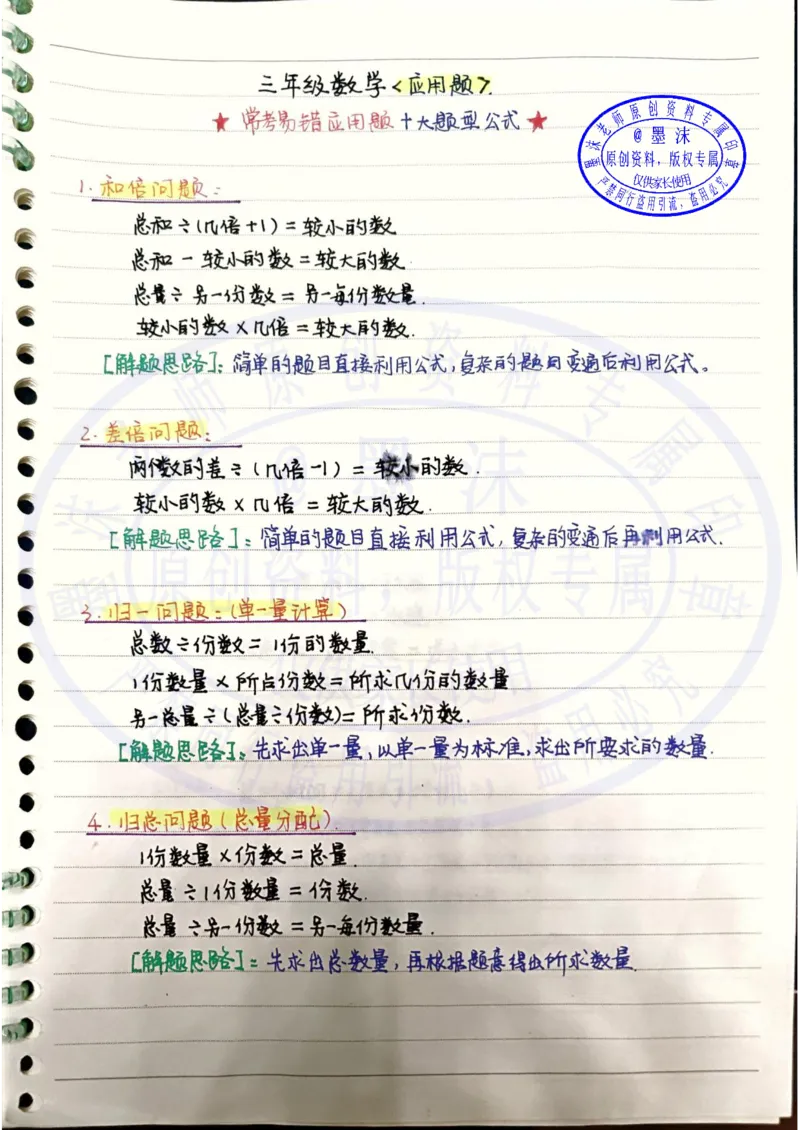 三年级数学<应用题>.
★常考易错应用题十大题型公式★
墨沫老师原创资料专属印章
@墨沫
原创资料，版权专属
仅供家长使用
严禁同行盗用引流，盗用必究
1.和倍问题：
总和÷(几倍+1)=较小的数
总和-较小的数=较大的数
总量÷另一份数=另一每份数量.
较小的数×几倍=较大的数.
[解题思路]：简单的题目直接利用公式，复杂的题目变通后利用公式。
2.差倍问题：
两个数的差÷(几倍-1)=较小的数.
较小的数×几倍=较大的数.
[解题思路]：简单的题目直接利用公式，复杂的变通后再利用公式.
3.归一问题：(单一量计算)
总数÷份数=1份的数量.
1份数量×所占份数=所求几份的数量
另一总量÷(总量÷份数)=所求份数.
[解题思路]：先求出单一量，以单一量为标准，求出所要求的数量.
4.归总问题(总量分配).
1份数量×份数=总量.
总量÷1份数量=份数.
总量÷另一份数=另一每份数量.
[解题思路]：先求出总数量，再根据题意得出所求数量.
墨沫老师原创资料专属印章
@墨沫
原创资料，版权专属